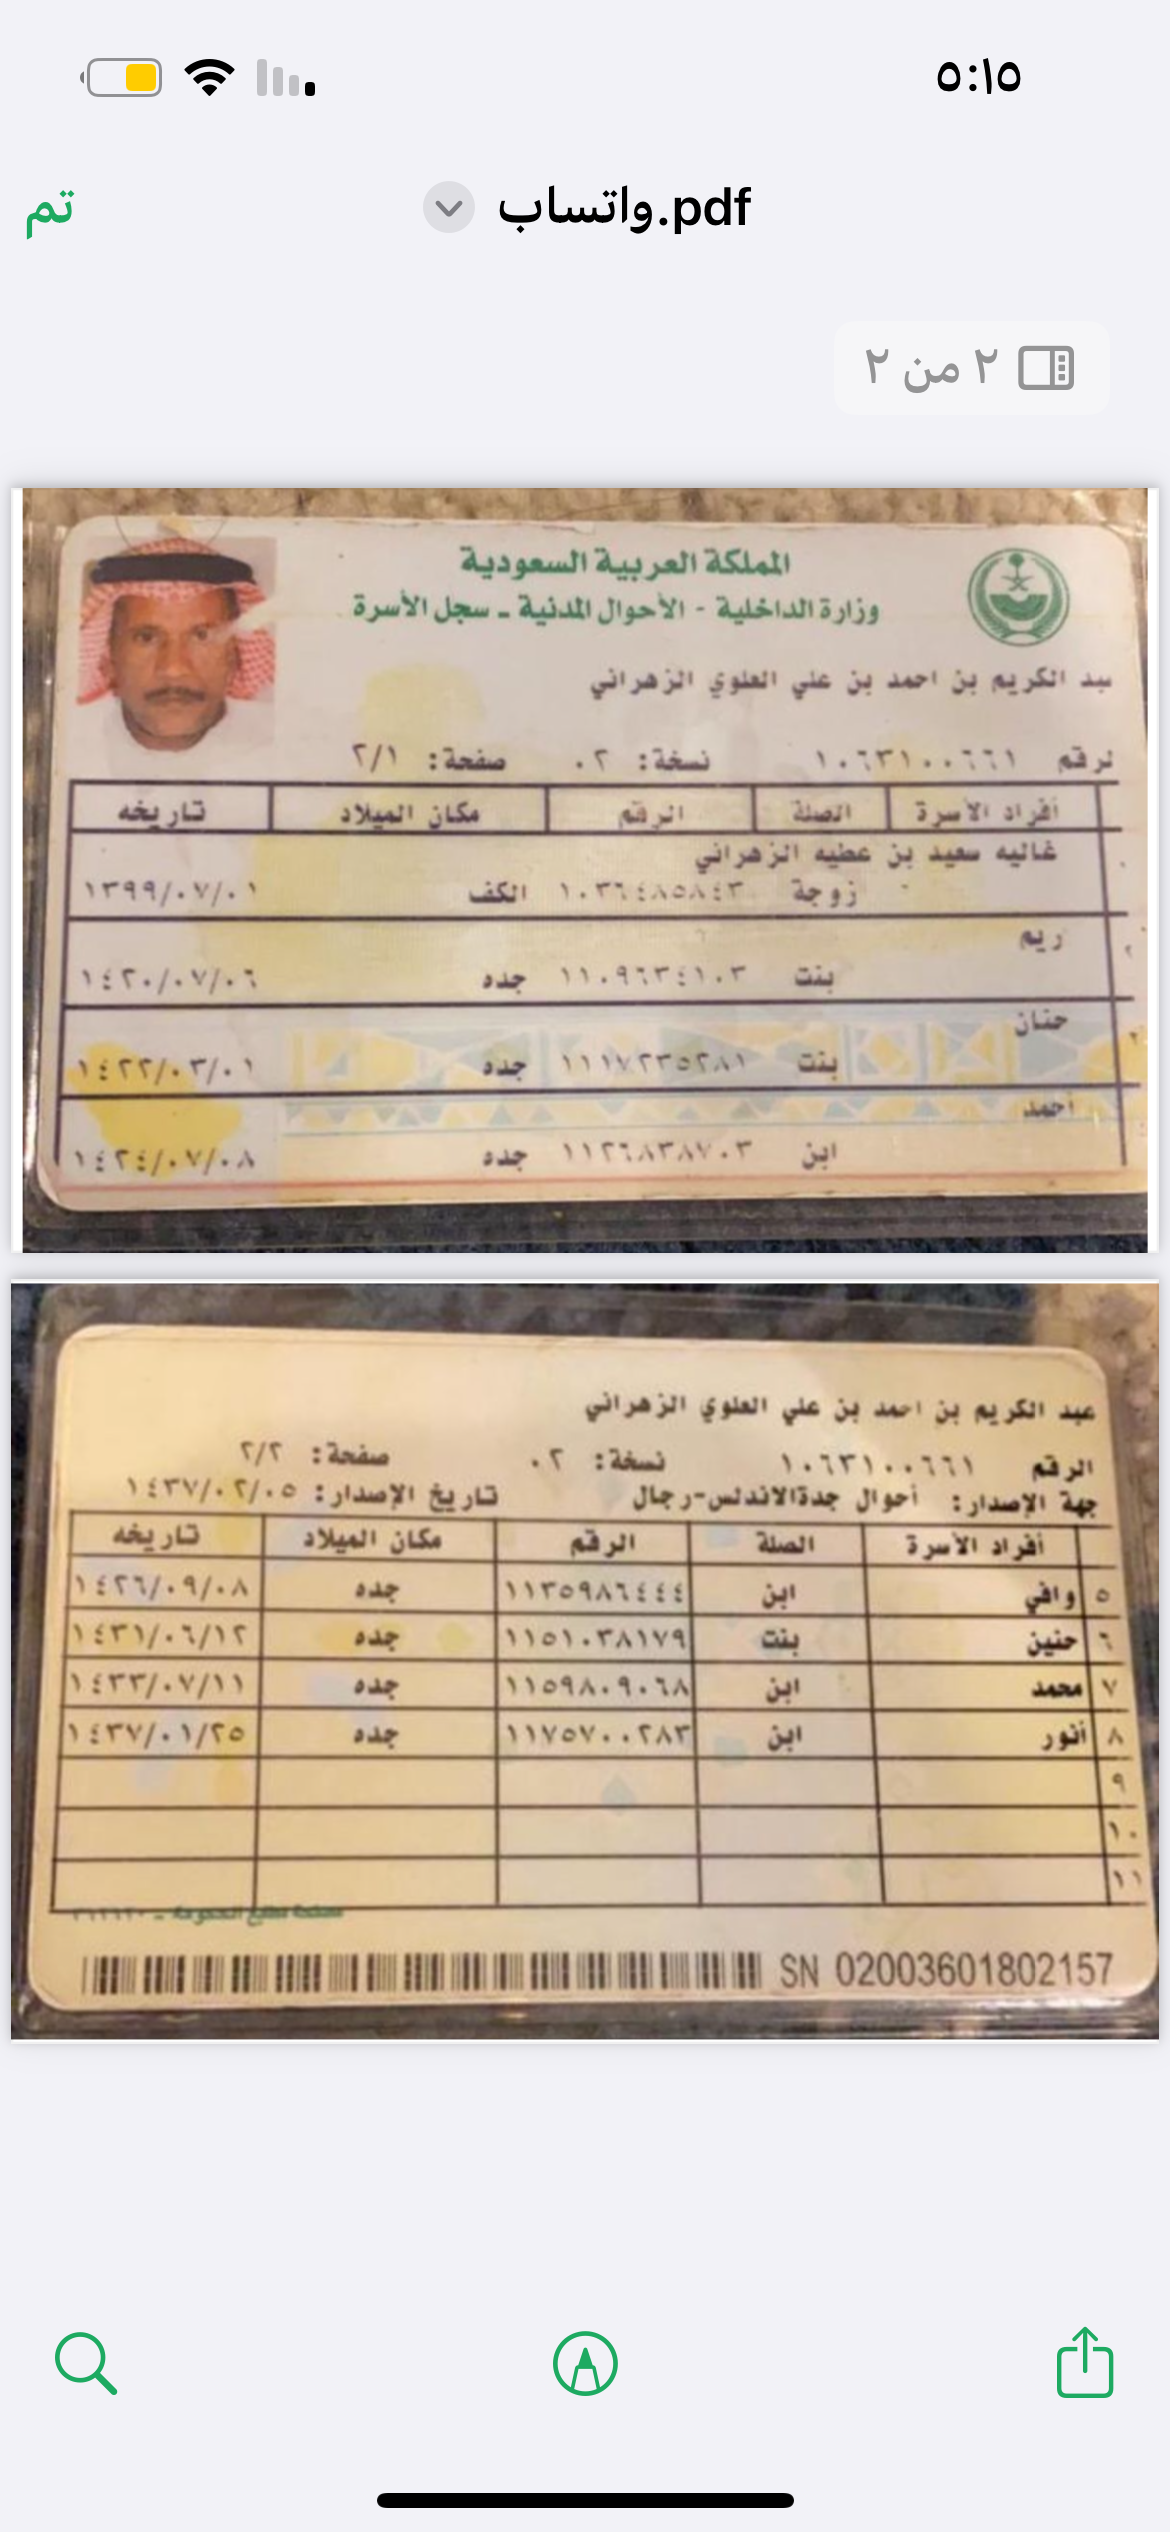 ٥:١٥
واتساب.pdf
تم
٢ من ٢
المملكة العربية السعودية
وزارة الداخلية - الأحوال المدنية - سجل الأسرة
عبد الكريم بن احمد بن علي العلوي الزهراني
الرقم ١٠٦٣١٠٠٦٦١ نسخة: ٠٢ صفحة: ٢/١
أفراد الأسرة الصلة الرقم مكان الميلاد تاريخه
غاليه سعيد بن عطيه الزهراني
زوجة ١٠٣٦٤٨٥٨٤٣ الكف ١٣٩٩/٠٧/٠١
ريم
بنت ١١٠٩٦٣٤١٠٣ جده ١٤٢٠/٠٧/٠٦
حنان
بنت ١١١٧٢٣٥٢٨١ جده ١٤٢٢/٠٣/٠١
أحمد
ابن ١١٢٦٨٣٨٧٠٣ جده ١٤٢٤/٠٧/٠٨
عبد الكريم بن احمد بن علي العلوي الزهراني
الرقم ١٠٦٣١٠٠٦٦١ نسخة: ٠٢ صفحة: ٢/٢
جهة الإصدار: أحوال جدةالاندلس-رجال تاريخ الإصدار: ١٤٣٧/٠٢/٠٥
أفراد الأسرة الصلة الرقم مكان الميلاد تاريخه
٥ وافي ابن ١١٣٥٩٨٦٤٤٤ جده ١٤٢٦/٠٩/٠٨
٦ حنين بنت ١١٥١٠٣٨١٧٩ جده ١٤٣١/٠٦/١٢
٧ محمد ابن ١١٥٩٨٠٩٠٦٨ جده ١٤٣٣/٠٧/١١
٨ أنور ابن ١١٧٥٧٠٠٢٨٣ جده ١٤٣٧/٠١/٢٥
٩
١٠
١١
SN 02003601802157